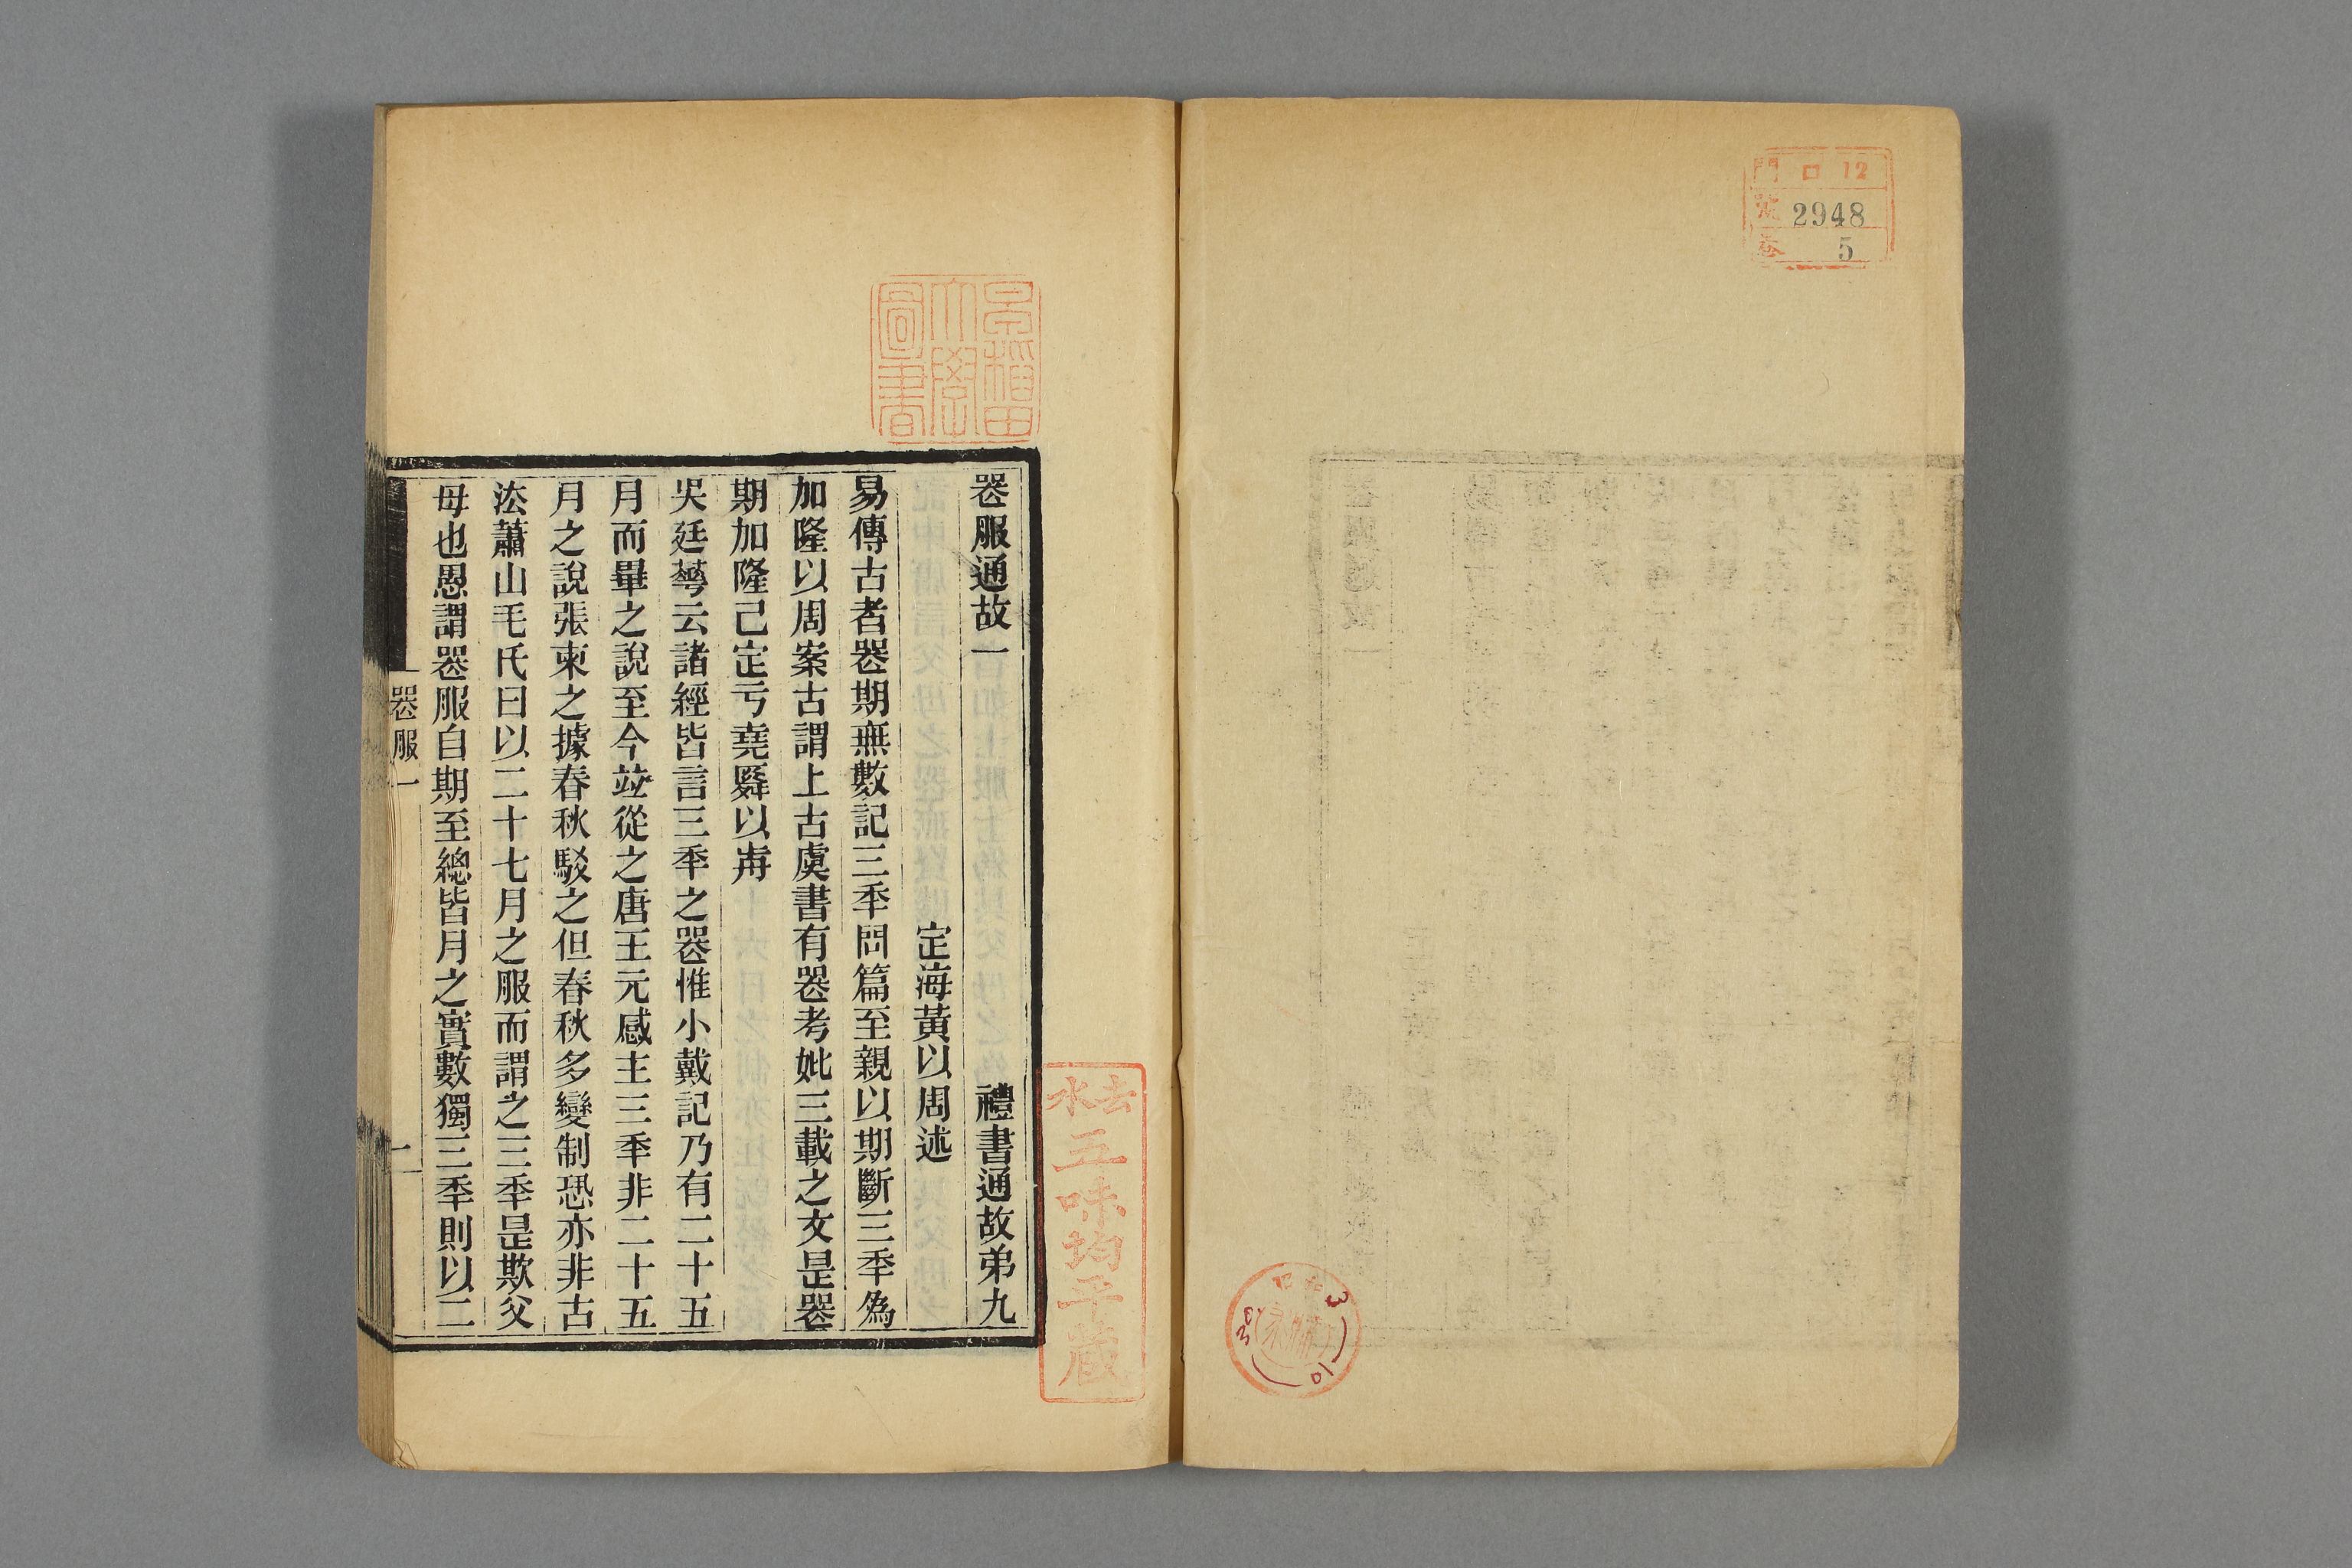 門 口 12
號 2948
卷 5
喪服通故一 禮書通故弟九
定海黃以周述
易傳古者喪期無數記三秊問篇至親以期斷三秊爲
加隆以周案古謂上古虞書有喪考妣三載之文是喪
期加隆已定亏堯舜以歬
吳廷華云諸經皆言三秊之喪惟小戴記乃有二十五
月而畢之說至今竝從之唐王元感主三秊非二十五
月之說張柬之據春秋駁之但春秋多變制恐亦非古
法蕭山毛氏曰以二十七月之服而謂之三秊是欺父
母也愚謂喪服自期至緦皆月之實數獨三秊則以二
喪服一
一
早稻田
大學
圖書
去水
五味均平藏